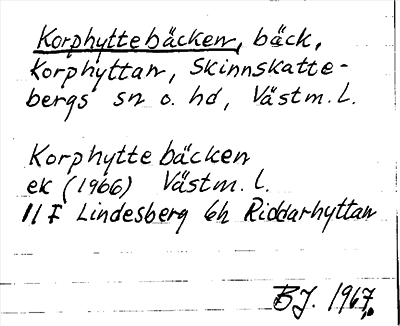 Korphyttebäcken, bäck,
Korphyttan, Skinnskatte-
bergs sn o. hd, Västm.l.
Korphyttebäcken
ek (1966) Västm.l.
11 F Lindesberg 6h Riddarhyttan
BJ. 1967.